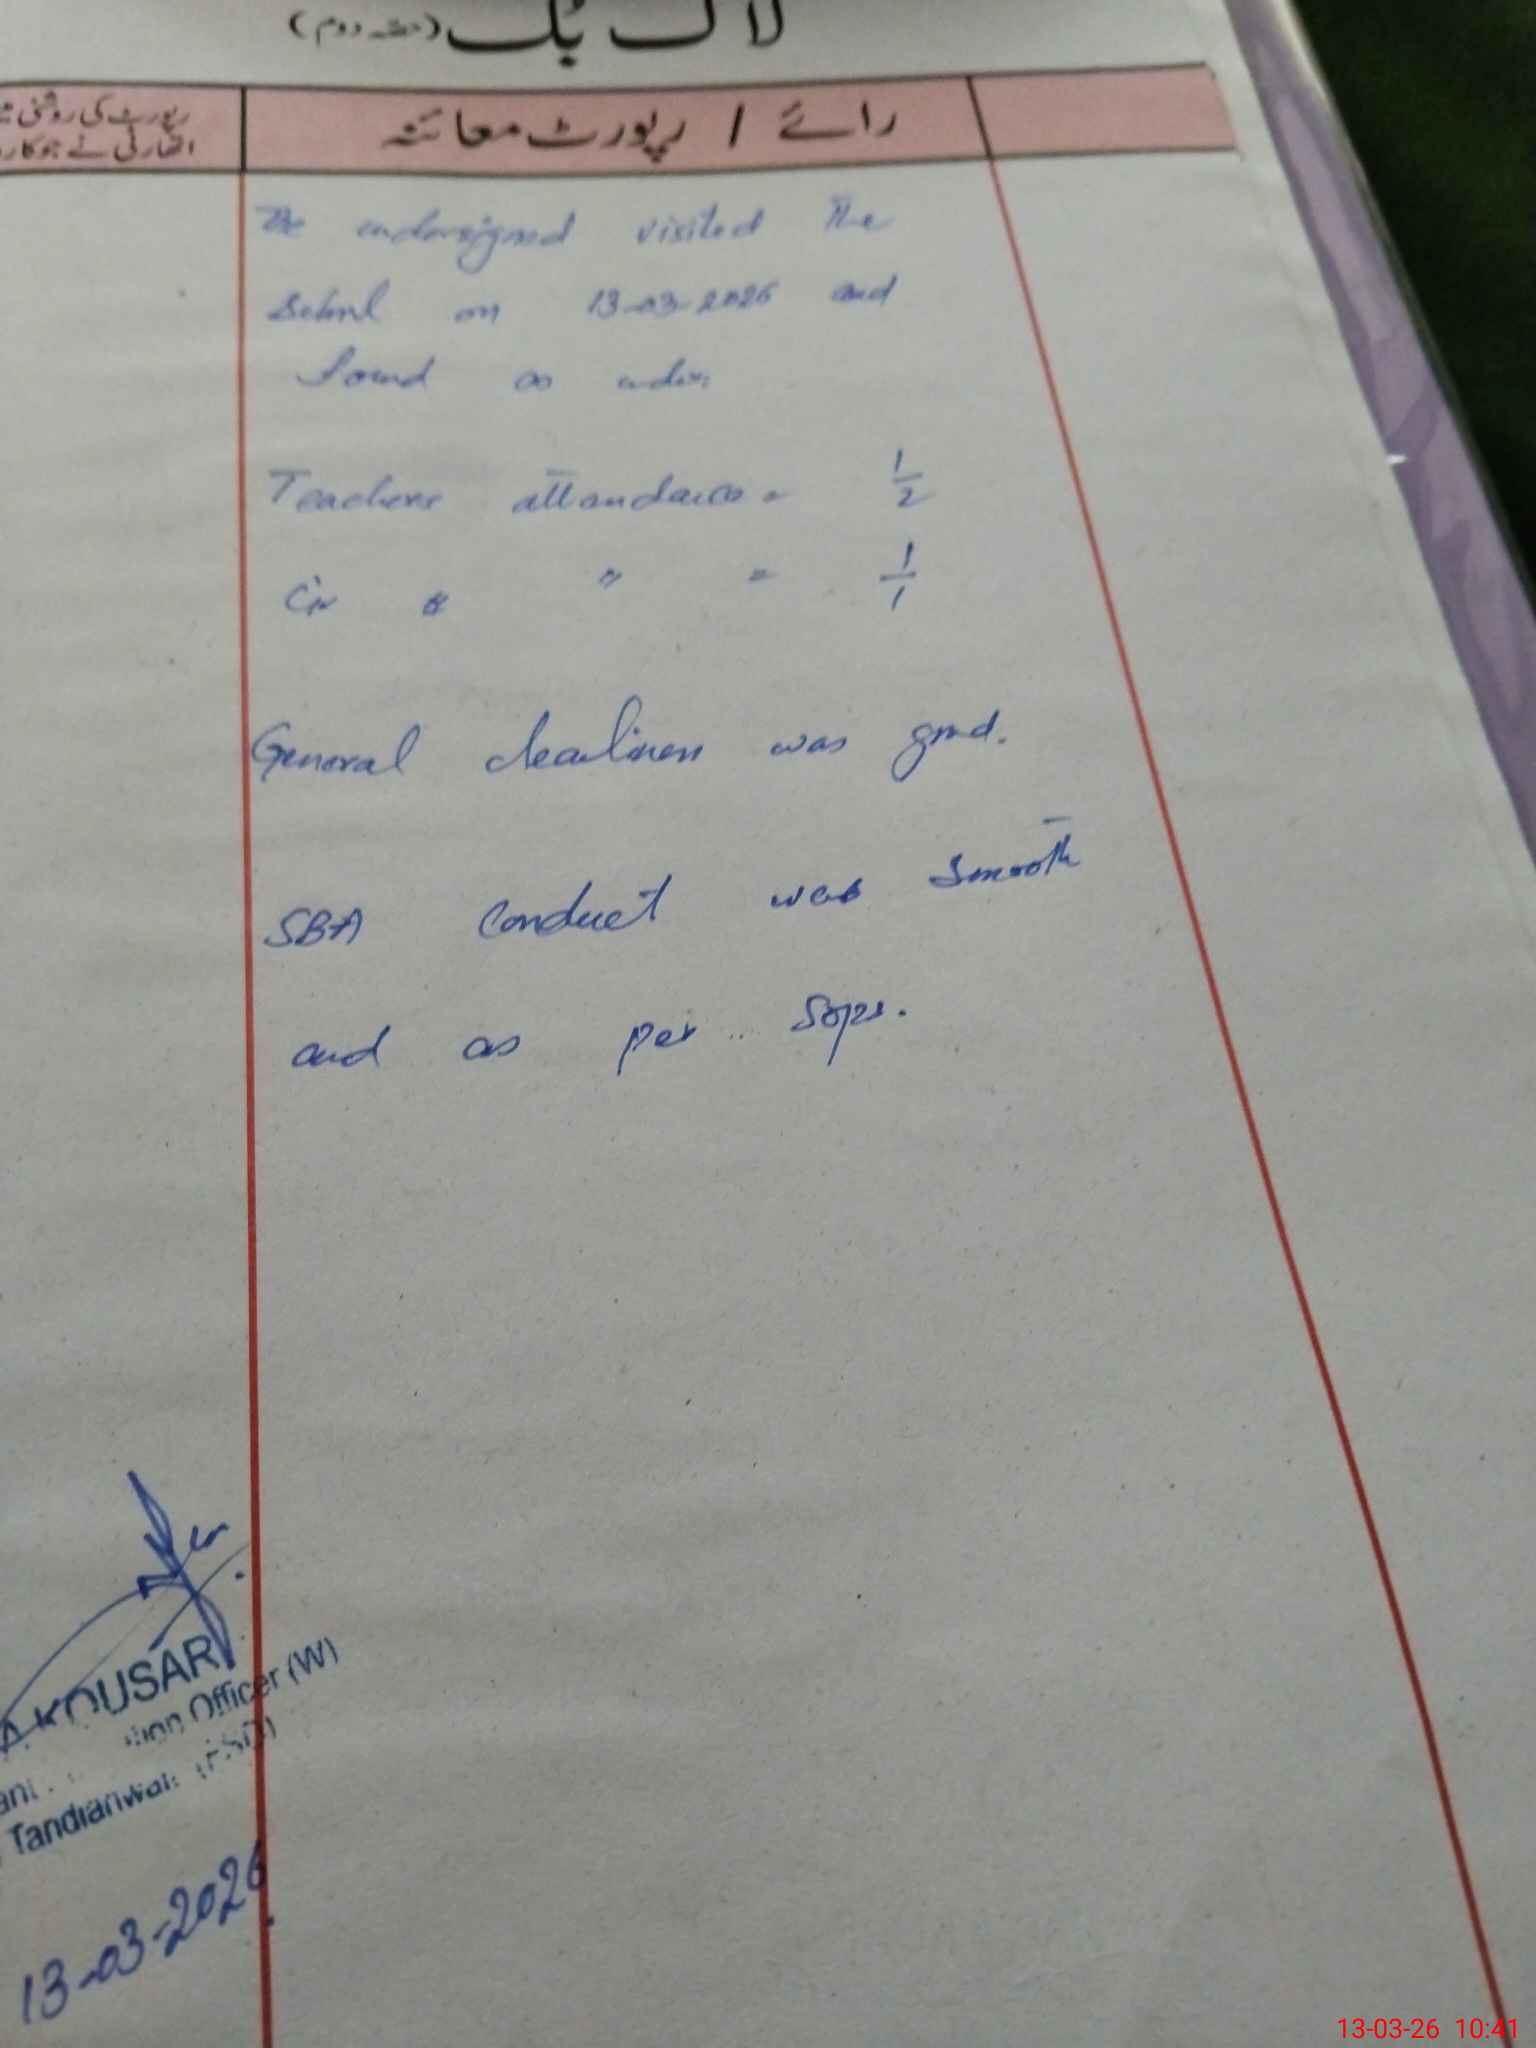 لاگ بُک (حصہ دوم)
رائے / رپورٹ معائنہ
رپورٹ کی روشنی میں
اتھارٹی نے جو کار
The undersigned visited the
School on 13-03-2026 and
found as under:
Teachers attendance = 1/2
" " = 1/1
General cleanliness was good.
SBA Conduct was smooth
and as per Sops.
A KOUSAR
Officer (W)
Tandianwala (FSD)
13-03-2026
13-03-26 10:41